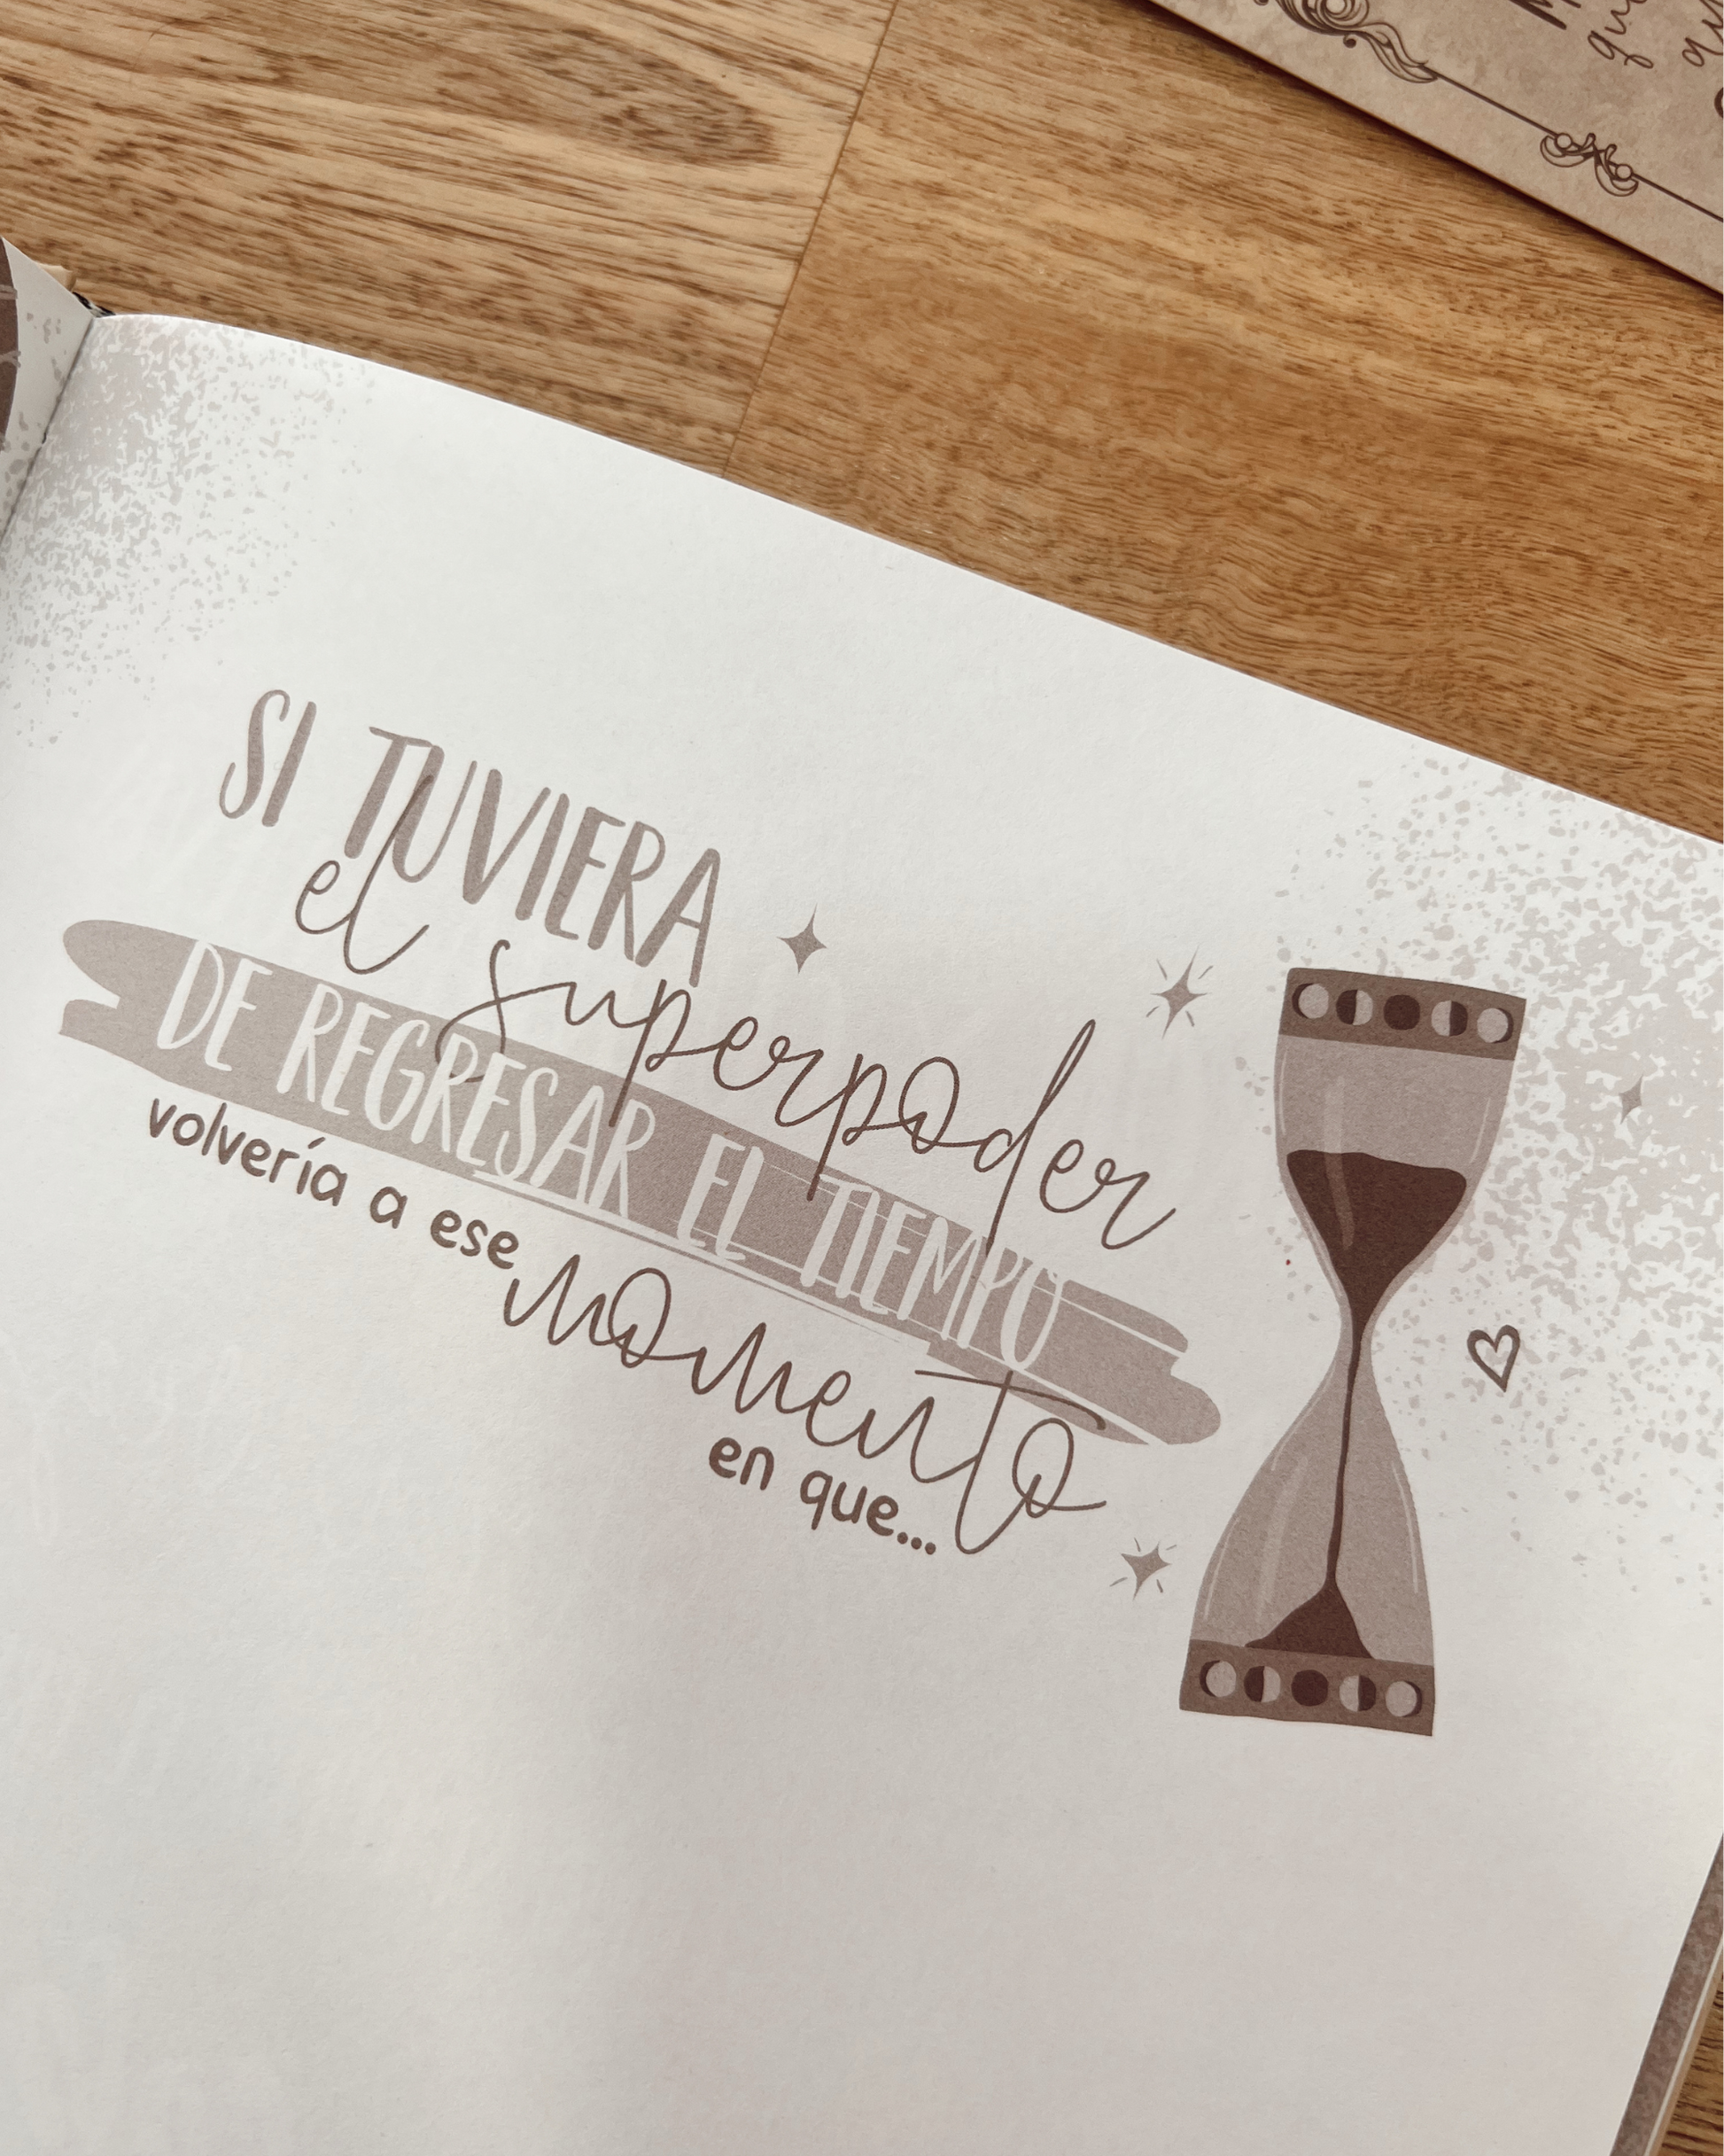 SI TUVIERA
el superpoder
DE REGRESAR EL TIEMPO
volvería a ese
momento
en que...